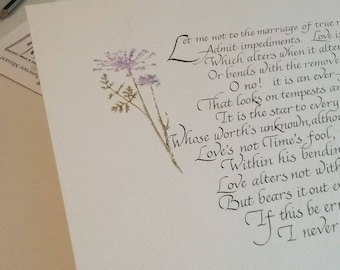 Let me not to the marriage of true m
Admit impediments. Love is
Which alters when it alter
Or bends with the remove
O no! it is an ever
That looks on tempests an
It is the star to every
Whose worth's unknown, althou
Love's not Time's fool,
Within his bending
Love alters not with
But bears it out e
If this be er
I never